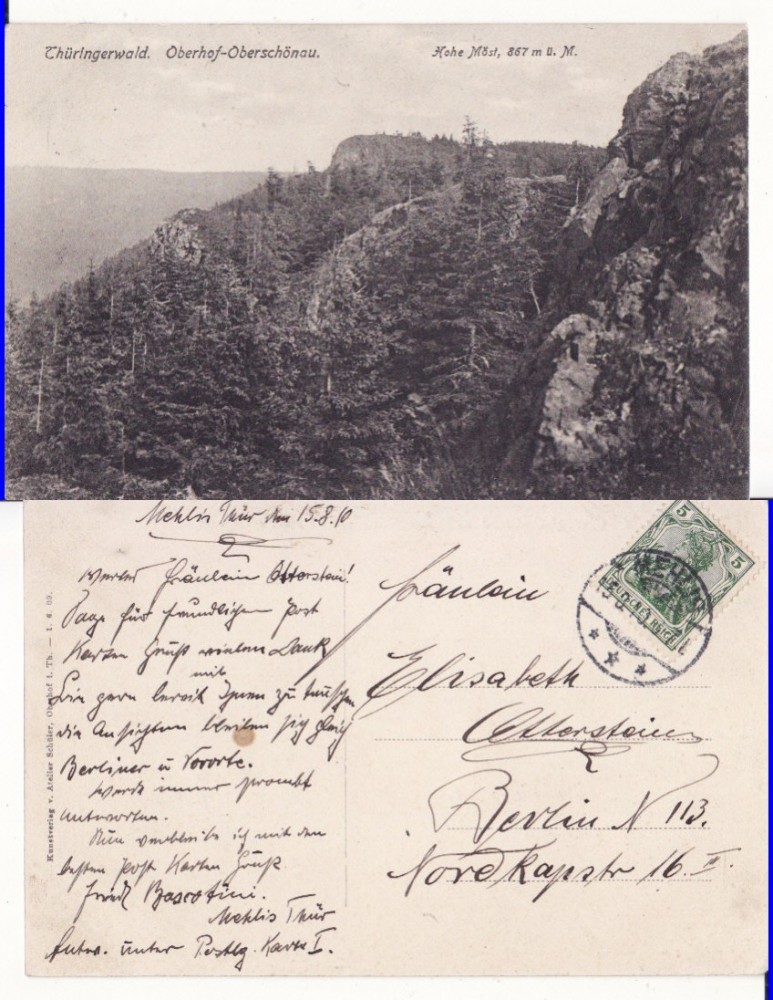 Thüringerwald. Oberhof-Oberschönau.
Hohe Möst, 867 m ü. M.
Mehlis Thür den 15.8.10
Wertes Fräulein Otterstein!
Sage für freundlichen Post
Karten Gruß vielen Dank
Bin gern bereit mit Ihnen zu tauschen
die Ansichten bleiben sich gleich
Berliner u Vororte.
Werde immer prombt
antworten.
Nun verbleibe ich mit den
besten Post Karten Gruß
Mehlis Thür
Antw. unter Postlg. Karte I.
Kunstverlag v. Atelier Schüler, Oberhof i. Th.
5
5
MEHLIS
DEUTSCHES REICH
Fräulein
Elisabeth
Otterstein
Berlin N 113.
Nordkapstr 16 II.